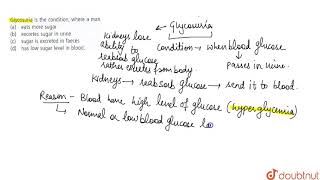 Glycosuria is the condition, where a man
(a) eats more sugar
(b) excretes sugar in urine
(c) sugar is excreted in faeces
(d) has low sugar level in blood.
Glycosuria
kidneys lose ability to reabsorb glucose rather excretes from body
condition → when blood glucose
↓
passes in urine.
kidneys → reabsorb glucose → send it to blood.
Reason - Blood have high level of glucose (hyperglycemia)
↳ Normal or low blood glucose le
doubtnut